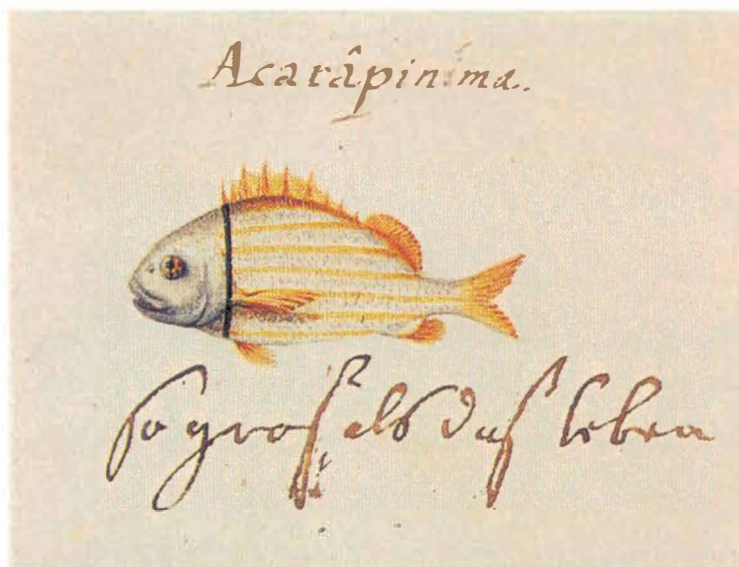 Acarâpinima.
so groß als daß leben